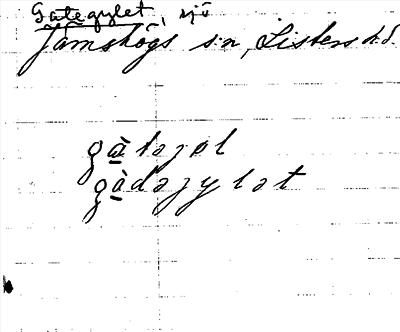 Gategylet, sjö
Jämshögs sn, Listers hd.
gàtəjøl
gàdəjylət